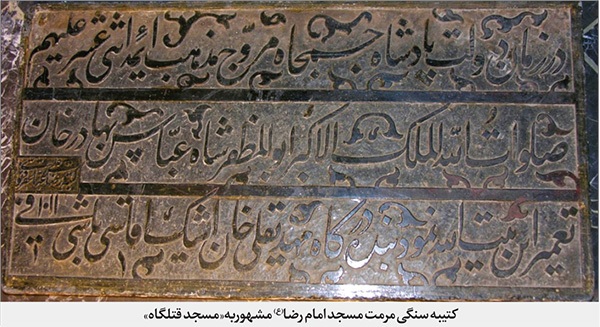 در زمان دولت پادشاه جمجاه مروج مذهب ائمه اثنی عشر علیهم
صلوات الله الملک الاکبر ابوالمظفر شاه عباس بهادر خان
تعمیر این بیت الله نمود بنده درگاه مهدیقلی خان اشیک اقاسی باشی فی
کتیبه سنگی مرمت مسجد امام رضا(ع) مشهور به «مسجد قتلگاه»